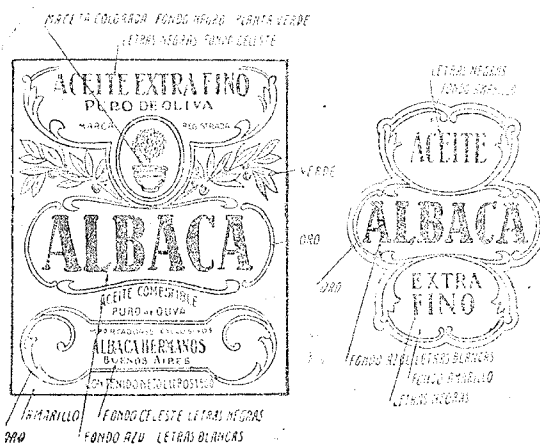 MACETA COLORADA FONDO NEGRO PLANTA VERDE
LETRAS NEGRAS FONDO CELESTE
ACEITE EXTRA FINO
PURO DE OLIVA
MARCA REGISTRADA
VERDE
ALBACA
ORO
ACEITE COMESTIBLE
PURO DE OLIVA
IMPORTADORES EXCLUSIVOS
ALBACA HERMANOS
BUENOS AIRES
CONTENIDO NETO
AMARILLO
FONDO CELESTE LETRAS NEGRAS
ORO
FONDO AZU LETRAS BLANCAS
LETRAS NEGRAS
FONDO AMARILLO
ACEITE
ALBACA
ORO
EXTRA
FINO
FONDO AZUL LETRAS BLANCAS
FONDO AMARILLO
LETRAS NEGRAS